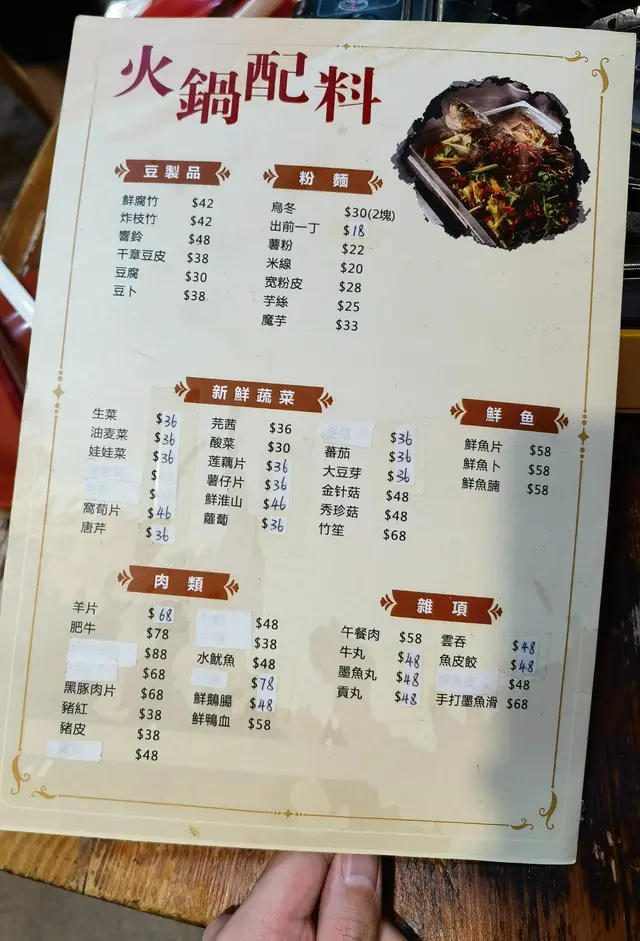 火鍋配料
豆製品
鮮腐竹 $42
炸枝竹 $42
響鈴 $48
千章豆皮 $38
豆腐 $30
豆卜 $38
粉麵
烏冬 $30(2塊)
出前一丁 $18
薯粉 $22
米線 $20
宽粉皮 $28
芋絲 $25
魔芋 $33
新鮮蔬菜
生菜 $36
油麦菜 $36
娃娃菜 $36
$
$
窩荀片 $46
唐芹 $36
芫茜 $36
酸菜 $30
莲藕片 $36
薯仔片 $36
鮮淮山 $46
蘿蔔 $36
$36
蕃茄 $36
大豆芽 $36
金针菇 $48
秀珍菇 $48
竹笙 $68
鮮鱼
鮮魚片 $58
鮮魚卜 $58
鮮魚腩 $58
肉類
羊片 $68
肥牛 $78
$88
$68
黑豚肉片 $68
豬紅 $38
豬皮 $38
$48
$48
$38
水魷魚 $48
$78
鮮鵝腸 $48
鮮鴨血 $58
雜項
午餐肉 $58
牛丸 $48
墨魚丸 $48
貢丸 $48
雲吞 $48
魚皮餃 $48
$48
手打墨魚滑 $68